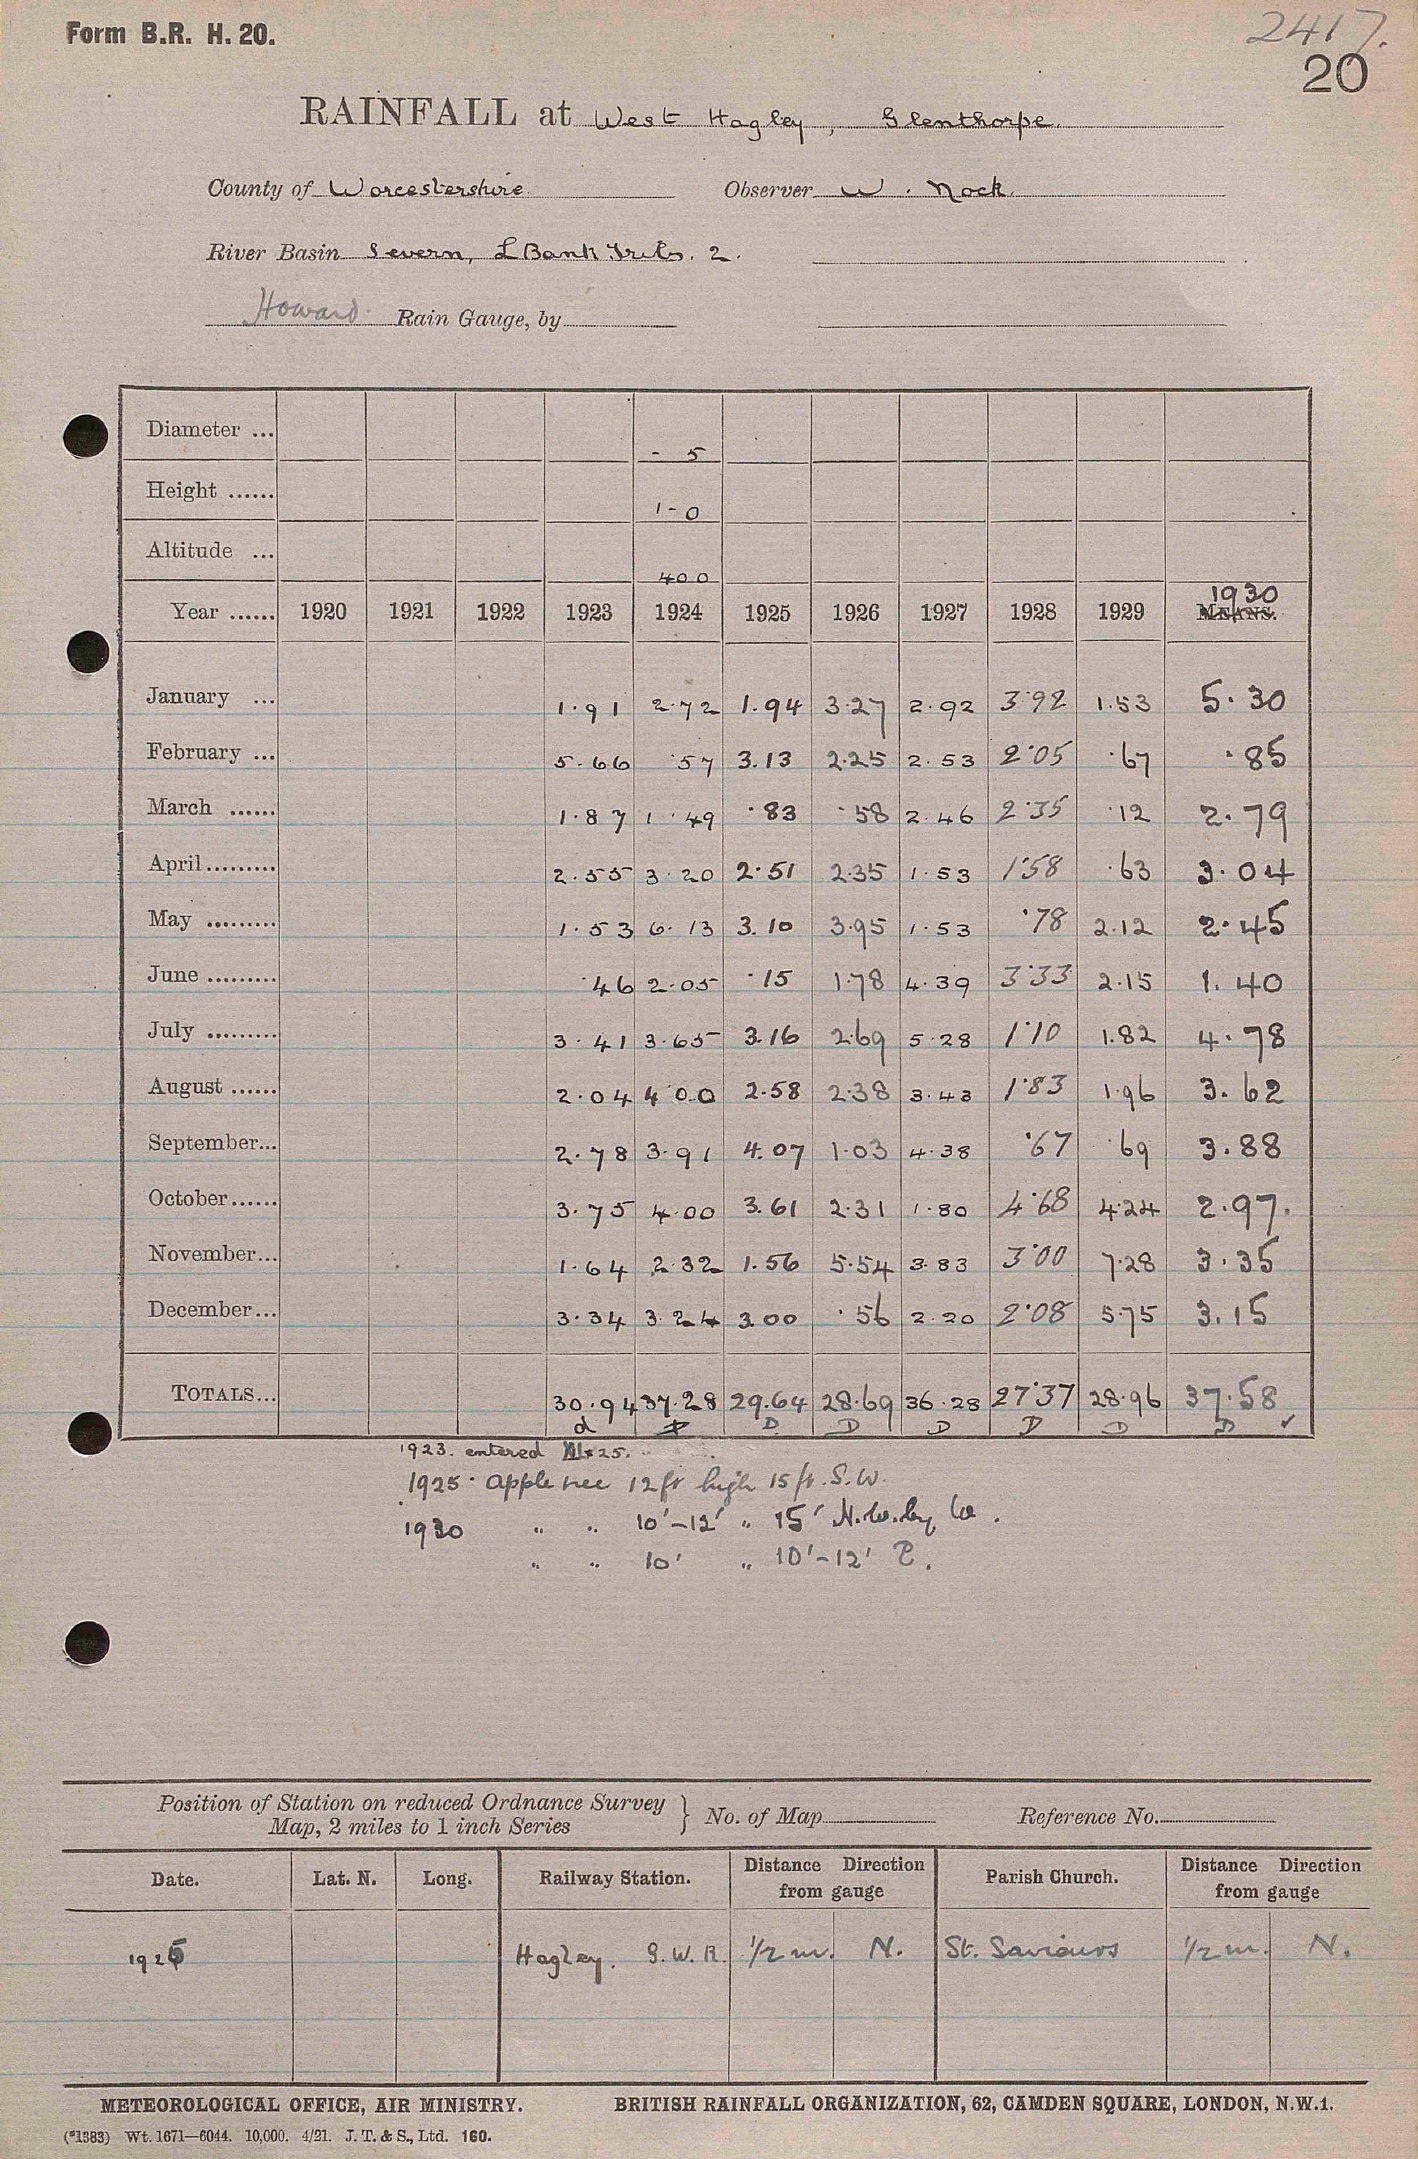 Form B.R. H. 20.
2417.
20
RAINFALL at West Hagley, Glenthorpe.
County of Worcestershire. Observer W. Nock.
River Basin Severn, L Bank Tribs. 2.
Howard Rain Gauge, by
Diameter ... - 5
Height ...... 1-0
Altitude ... 400
1930
Year ...... 1920 1921 1922 1923 1924 1925 1926 1927 1928 1929 MEANS.
January ... 1.91 2.72 1.94 3.27 2.92 3.92 1.53 5.30
February ... 5.66 .57 3.13 2.25 2.53 2.05 .67 .85
March ...... 1.87 1.49 .83 .58 2.46 2.35 .12 2.79
April ......... 2.55 3.20 2.51 2.35 1.53 1.58 .63 3.04
May ......... 1.53 6.13 3.10 3.95 1.53 .78 2.12 2.45
June ......... .46 2.05 .15 1.78 4.39 3.33 2.15 1.40
July ......... 3.41 3.65 3.16 2.69 5.28 1.10 1.82 4.78
August ...... 2.04 4.00 2.58 2.38 3.43 1.83 1.96 3.62
September... 2.78 3.91 4.07 1.03 4.38 .67 .69 3.88
October ...... 3.75 4.00 3.61 2.31 1.80 4.68 4.24 2.97.
November... 1.64 2.32 1.56 5.54 3.83 3.00 7.28 3.35
December... 3.34 3.24 3.00 .56 2.20 2.08 5.75 3.15
TOTALS... 30.94 37.28 29.64 28.69 36.28 27.37 28.96 37.58
d D D D D D D D ✓
1923. entered 25.
1925. apple tree 12ft high 15 ft. S.W.
1930 " " 10'-12' " 15' N.W. by W.
" " 10' " 10'-12' E.
Position of Station on reduced Ordnance Survey
Map, 2 miles to 1 inch Series } No. of Map Reference No.
Date. Lat. N. Long. Railway Station. Distance Direction from gauge Parish Church. Distance Direction from gauge
1925 Hagley. G.W.R. 1/2 m. N. St. Saviours 1/2 m. N.
METEOROLOGICAL OFFICE, AIR MINISTRY. BRITISH RAINFALL ORGANIZATION, 62, CAMDEN SQUARE, LONDON, N.W.1.
(*1383) Wt. 1671—6044. 10,000. 4/21. J. T. & S., Ltd. 160.